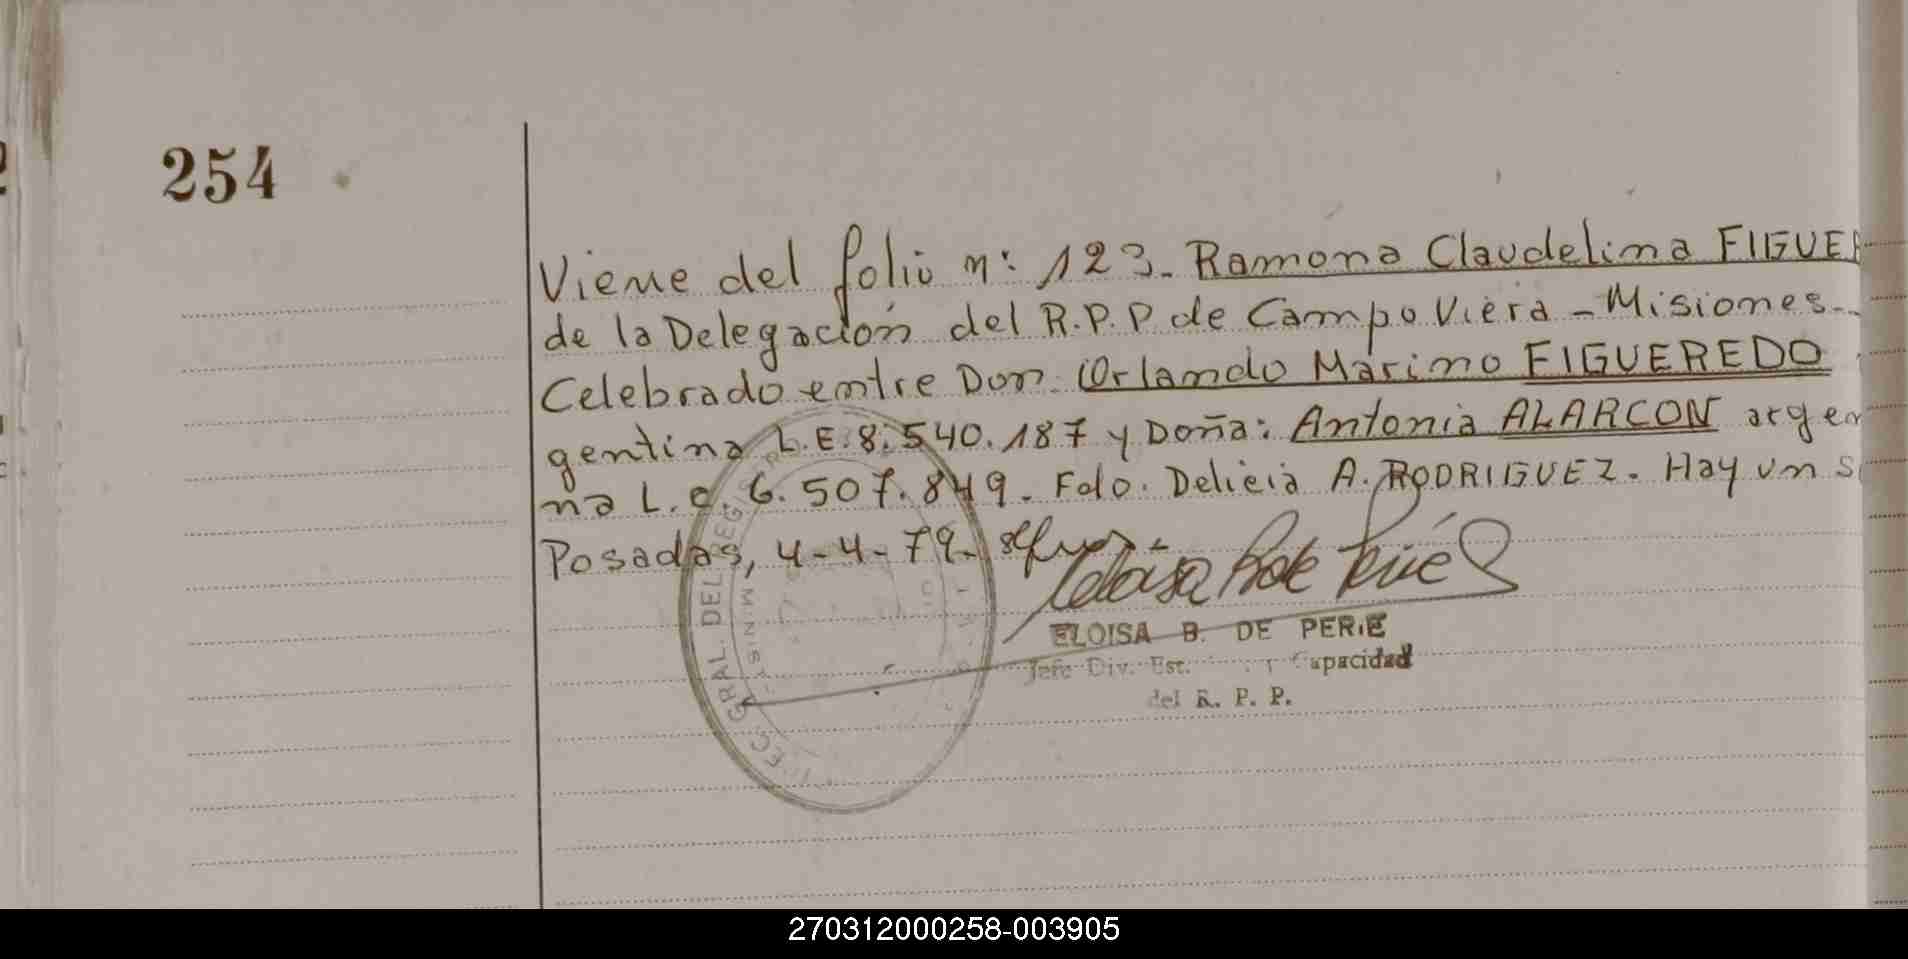 254
Viene del folio n: 123. Ramona Claudelina FIGUE
de la Delegación del R.P.P de Campo Viera - Misiones.
Celebrado entre Don Orlando Marino FIGUEREDO
gentina L.E.8.540.187 y Doña: Antonia ALARCON argen
na L.C. 6.507.849. Fdo. Delicia A. RODRIGUEZ. Hay un S
Posadas, 4-4-79.
ELOISA B. DE PERIE
Jefe Div. Est. Capacidad
del R. P. P.
GRAL. DEL REGIS
MINIS
270312000258-003905